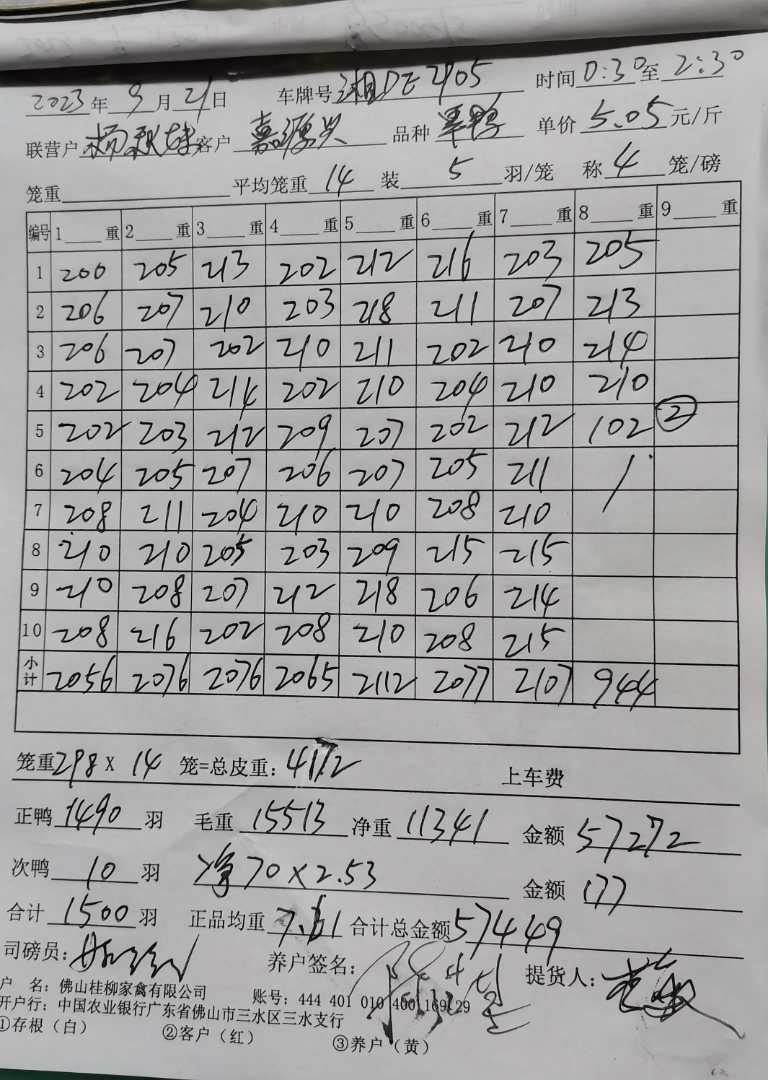 2023年 9月 21日 车牌号 湘DE2905 时间 0:30 至 2:30
联营户 客户 嘉源兴 品种 单鸭 单价 5.05 元/斤
笼重 平均笼重 14 装 5 羽/笼 称 4 笼/磅
编号 1 重 2 重 3 重 4 重 5 重 6 重 7 重 8 重 9 重
1 200 205 213 202 212 216 203 205
2 206 207 210 203 218 211 207 213
3 206 207 202 210 211 202 210 214
4 202 204 214 202 210 204 210 210
5 202 203 212 209 207 202 212 102 ②
6 204 205 207 206 207 205 211
7 208 211 204 210 210 208 210
8 210 210 205 203 209 215 215
9 210 208 207 212 218 206 214
10 208 216 202 208 210 208 215
小计 2056 2076 2076 2065 2112 2077 2107 944
笼重 298 X 14 笼=总皮重: 4172 上车费
正鸭 1490 羽 毛重 15513 净重 11341 金额 57272
次鸭 10 羽 净70×2.53 金额 177
合计 1500 羽 正品均重 7.61 合计总金额 57449
司磅员: 养户签名: 提货人:
户 名: 佛山桂柳家禽有限公司 账号: 444 401 010 400 169 29
开户行: 中国农业银行广东省佛山市三水区三水支行
①存根(白) ②客户(红) ③养户(黄)